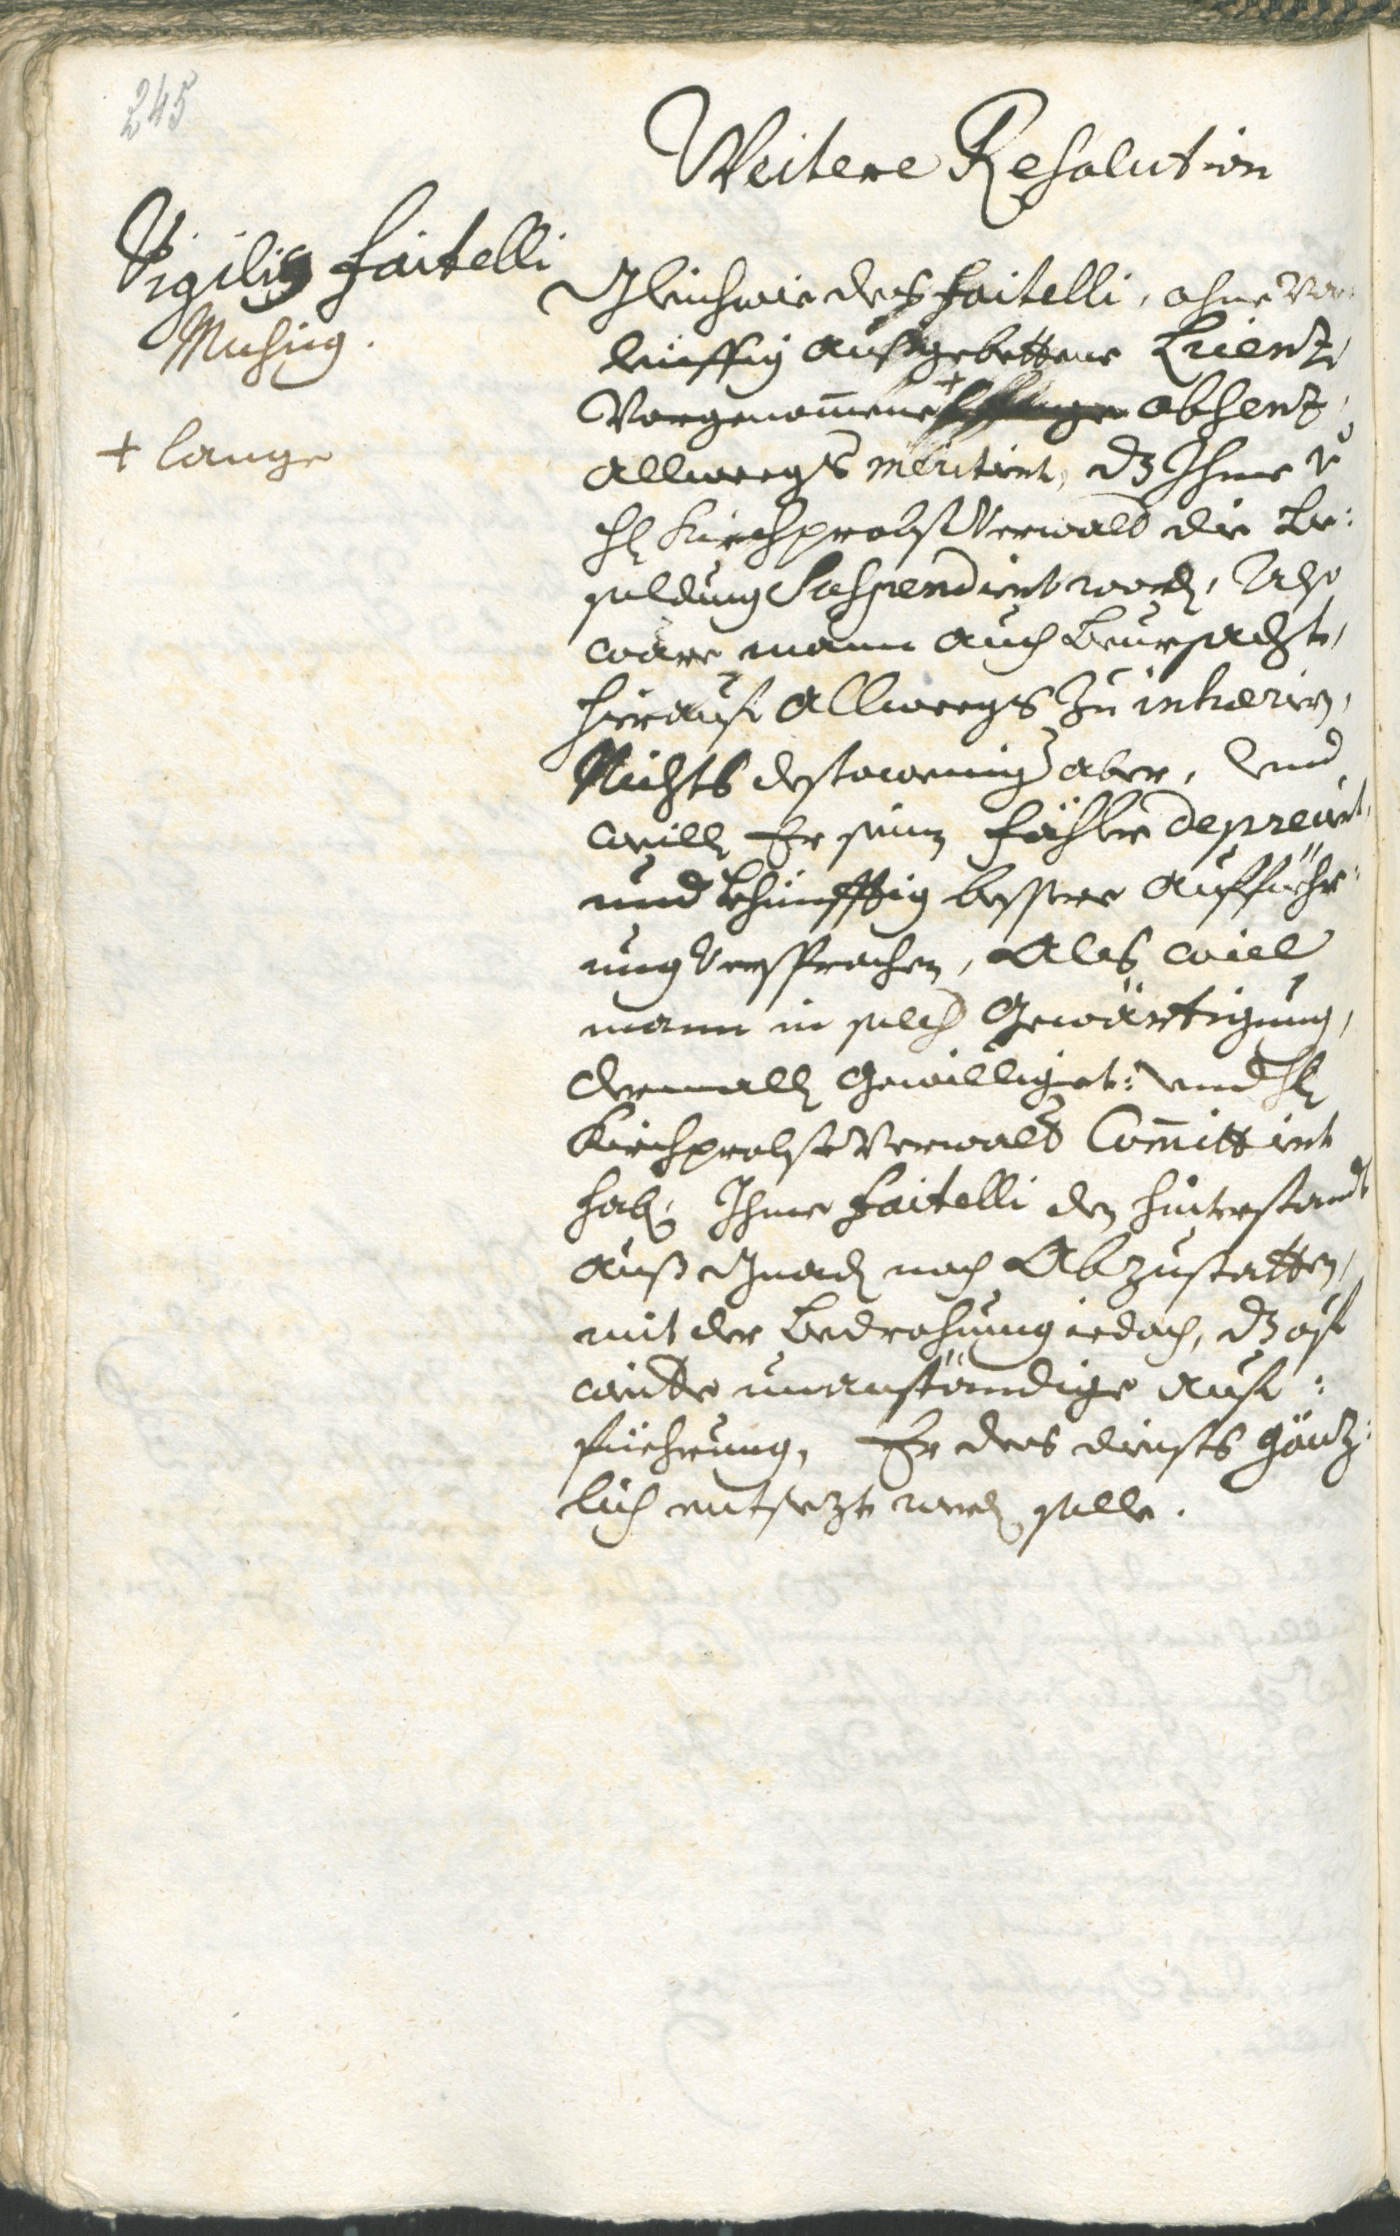 245
Weitere Resolution
Vigilis Faitelli
Musicg.
+ lange
Gleichwie des Faitelli, ohne vor¬
leüffig außgebettene Licentz,
Vorgenomene + absentz,
allweegs meritirt, dz Ihme v
Hl Kirchprobst Verwald die Be:
soldung Suspendirt word, Also
wäre mann auch beursacht,
hierauf allweegs zu inhærirn,
Nichts destoweniger aber, und
weill Er seine fähler deprecirt,
und khünfftig bessere aufführ:
ung versprochen, Als will
mann in solch Gewärtigung,
dermall gewilliget: und Hl
Kirchprobst Verwald Comittirt
hab, Ihme Faitelli den hinterstandt
auß Gnad nach Abzustatten,
mit der bedrohung iedoch, dz auf
weitere unanständige auf:
führung, Er des diensts gäntz:
lich entsezt werd solle.